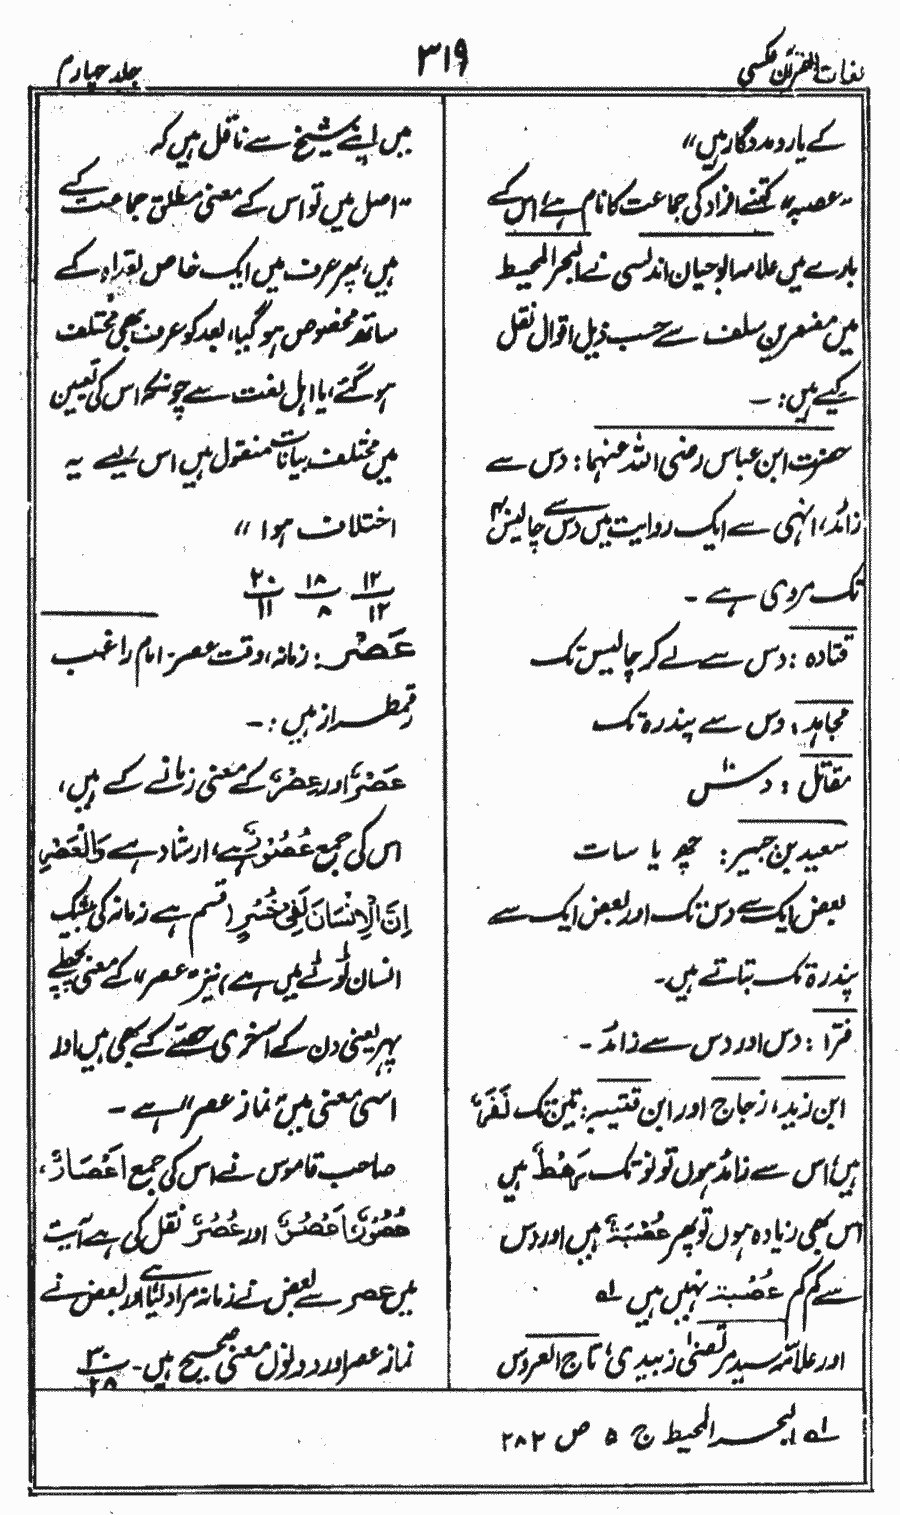 لغات القرآن عکسی
۳۱۹
جلد چہارم
کے یار و مددگار ہیں"
"عصبہ" کتنے افراد کی جماعت کا نام ہے، اس کے
بارے میں علامہ ابوحیان اندلسی نے البحر المحیط
میں مفسرین سلف سے حسب ذیل اقوال نقل
کیے ہیں:۔
حضرت ابن عباس رضی اللہ عنہما: دس سے
زائد، انہی سے ایک روایت میں دس سے چالیس
تک مروی ہے۔
قتادہ: دس سے لے کر چالیس تک
مجاہد: دس سے پندرہ تک
مقاتل: دس ۱۰
سعید بن جبیر: چھ یا سات
بعض ایک سے دس تک اور بعض ایک سے
پندرہ تک بتاتے ہیں۔
فرّا: دس اور دس سے زائد۔
ابن زید، زجاج اور ابن قتیبہ: تین تک نَفَرٌ
ہیں، اس سے زائد ہوں تو نو تک رَهْطٌ ہیں
اس بھی زیادہ ہوں تو پھر عُصْبَةٌ ہیں اور دس
سے کم کم عُصْبَة نہیں ہیں لہ
اور علامہ سید مرتضیٰ زبیدی، تاج العروس
میں اپنے شیخ سے ناقل ہیں کہ
"اصل میں تو اس کے معنی مطلق جماعت کے
ہیں، پھر عرف میں ایک خاص تعداد کے
ساتھ مخصوص ہو گیا، بعد کو عرف بھی مختلف
ہو گئے، یا اہل لغت سے چونکہ اس کی تعیین
میں مختلف بیانات منقول ہیں اس لیے یہ
اختلاف ہوا"
۱۲/۱۲ ۱۸/۸ ۲۰/۱۱
عَصْر: زمانہ، وقت عصر۔ امام راغب
رقمطراز ہیں:۔
عَصْرٌ اور عِصْرٌ کے معنی زمانے کے ہیں،
اس کی جمع عُصُوْرٌ ہے، ارشاد ہے وَالْعَصْرِ
اِنَّ الْاِنْسَانَ لَفِیْ خُسْرٍ (قسم ہے زمانہ کی بیشک
انسان ٹوٹے میں ہے) نیز "عصر" کے معنی پچھلے
پہر یعنی دن کے آخری حصے کے بھی ہیں اور
اسی معنی میں "نماز عصر" ہے۔
صاحب قاموس نے اس کی جمع اَعْصَارٌ،
عُصُوْرٌ، اَعْصُرٌ اور عُصُرٌ نقل کی ہے آیت
میں عصر سے بعض نے زمانہ مراد لیا ہے اور بعض نے
نماز عصر اور دونوں معنی صحیح ہیں۔ ۳۰/۲۸
لہ البحر المحیط ج ۵ ص ۲۸۳